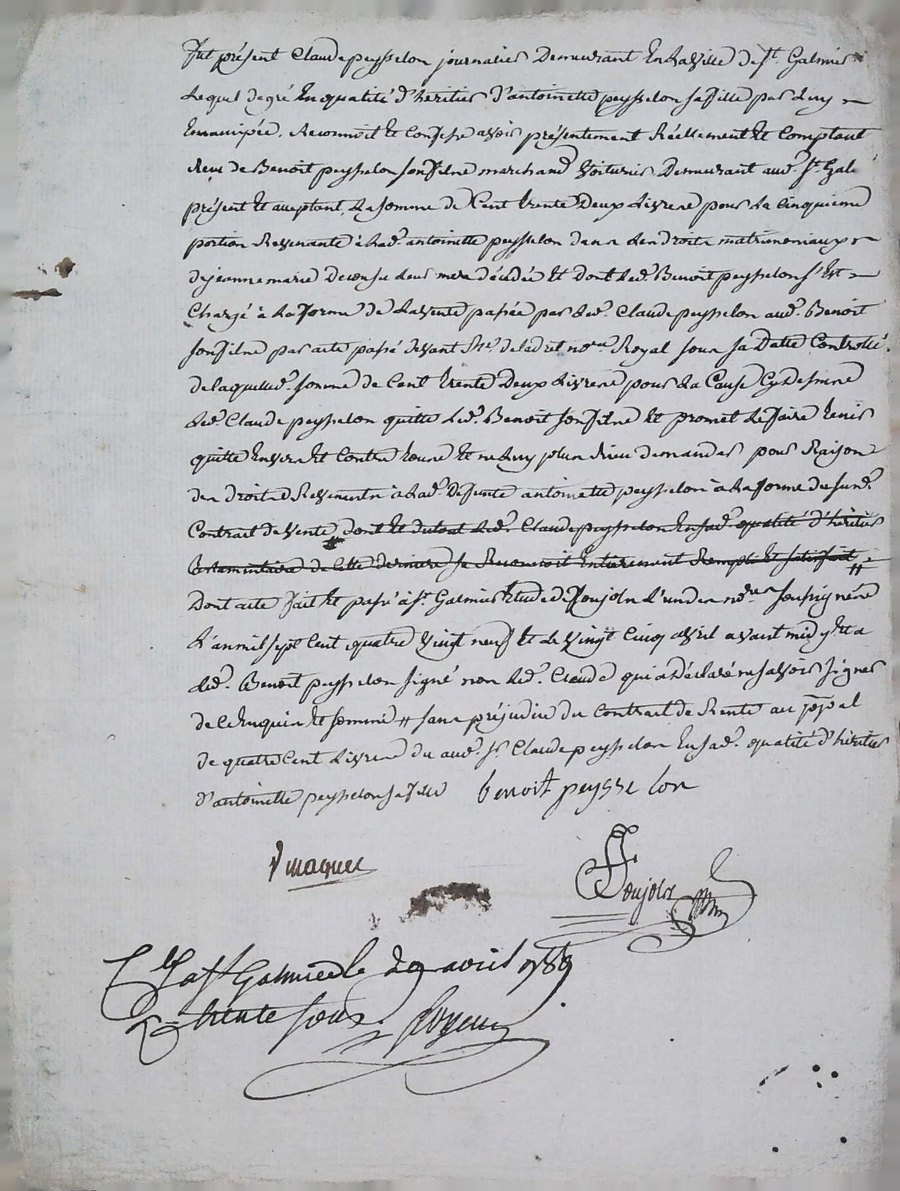 fut présent Claude peysselon journalier Demeurant En La Ville de St. Galmier
Lequel de gré En qualité d'heritier d'antoinette peysselon sa fille par Luy
Emancipée, Reconnoit Et Confesse avoir présentement Réellement Et Comptant
Reçu de Benoit peysselon son fils marchand Voiturier Demeurant aud. St. Gal.
présent Et acceptant, La somme de Cent trente Deux Livres pour La Cinquieme
portion Revenante à Lad. antoinette peysselon dans Les droits matrimoniaux
de jeanne marie leur mere décédée Et Dont Led. Benoit peysselon s'Est
Chargé à La forme de La Vente passée par Led. Claude peysselon aud. Benoit
son fils par acte passé devant Me. nore. Royal sous sa Datte Controllé.
de laquelled. somme de Cent trente Deux Livres pour La Cause Cy dessus
Led. Claude peysselon quitte Led. Benoit son fils Et promet Le faire tenir
quitte Envers Et Contre tous Et ne Luy plus Rien demander pour Raison
des droits Revenants à Lad. Defunte antoinette peysselon à La forme du susd.
Contrat de Vente, dont Et du tout Led. Claude peysselon En sad. qualité d'héritier
testamentaire de Cette derniere se Reconnoit Entierement Rempli Et satisfait
Dont acte fait Et passé à St. Galmier Etude de Poujols L'un des nores. soussignés
L'an mil sept Cent quatre Vingt neuf Et Le Vingt Cinq avril avant midy Et a
Led. Benoit peysselon signé non Led. Claude qui a Déclaré ne savoir signer
de Ce Enquis Et sommé // sans préjudice du Contrat de Rente au ppal
de quatre Cent Livres du aud. Sr. Claude peysselon En sad. qualité d'héritier
d'antoinette peysselon sa fille benoit peysse lon
Poujols
Clé a St Galmier le 29 avril 1789
trente sous